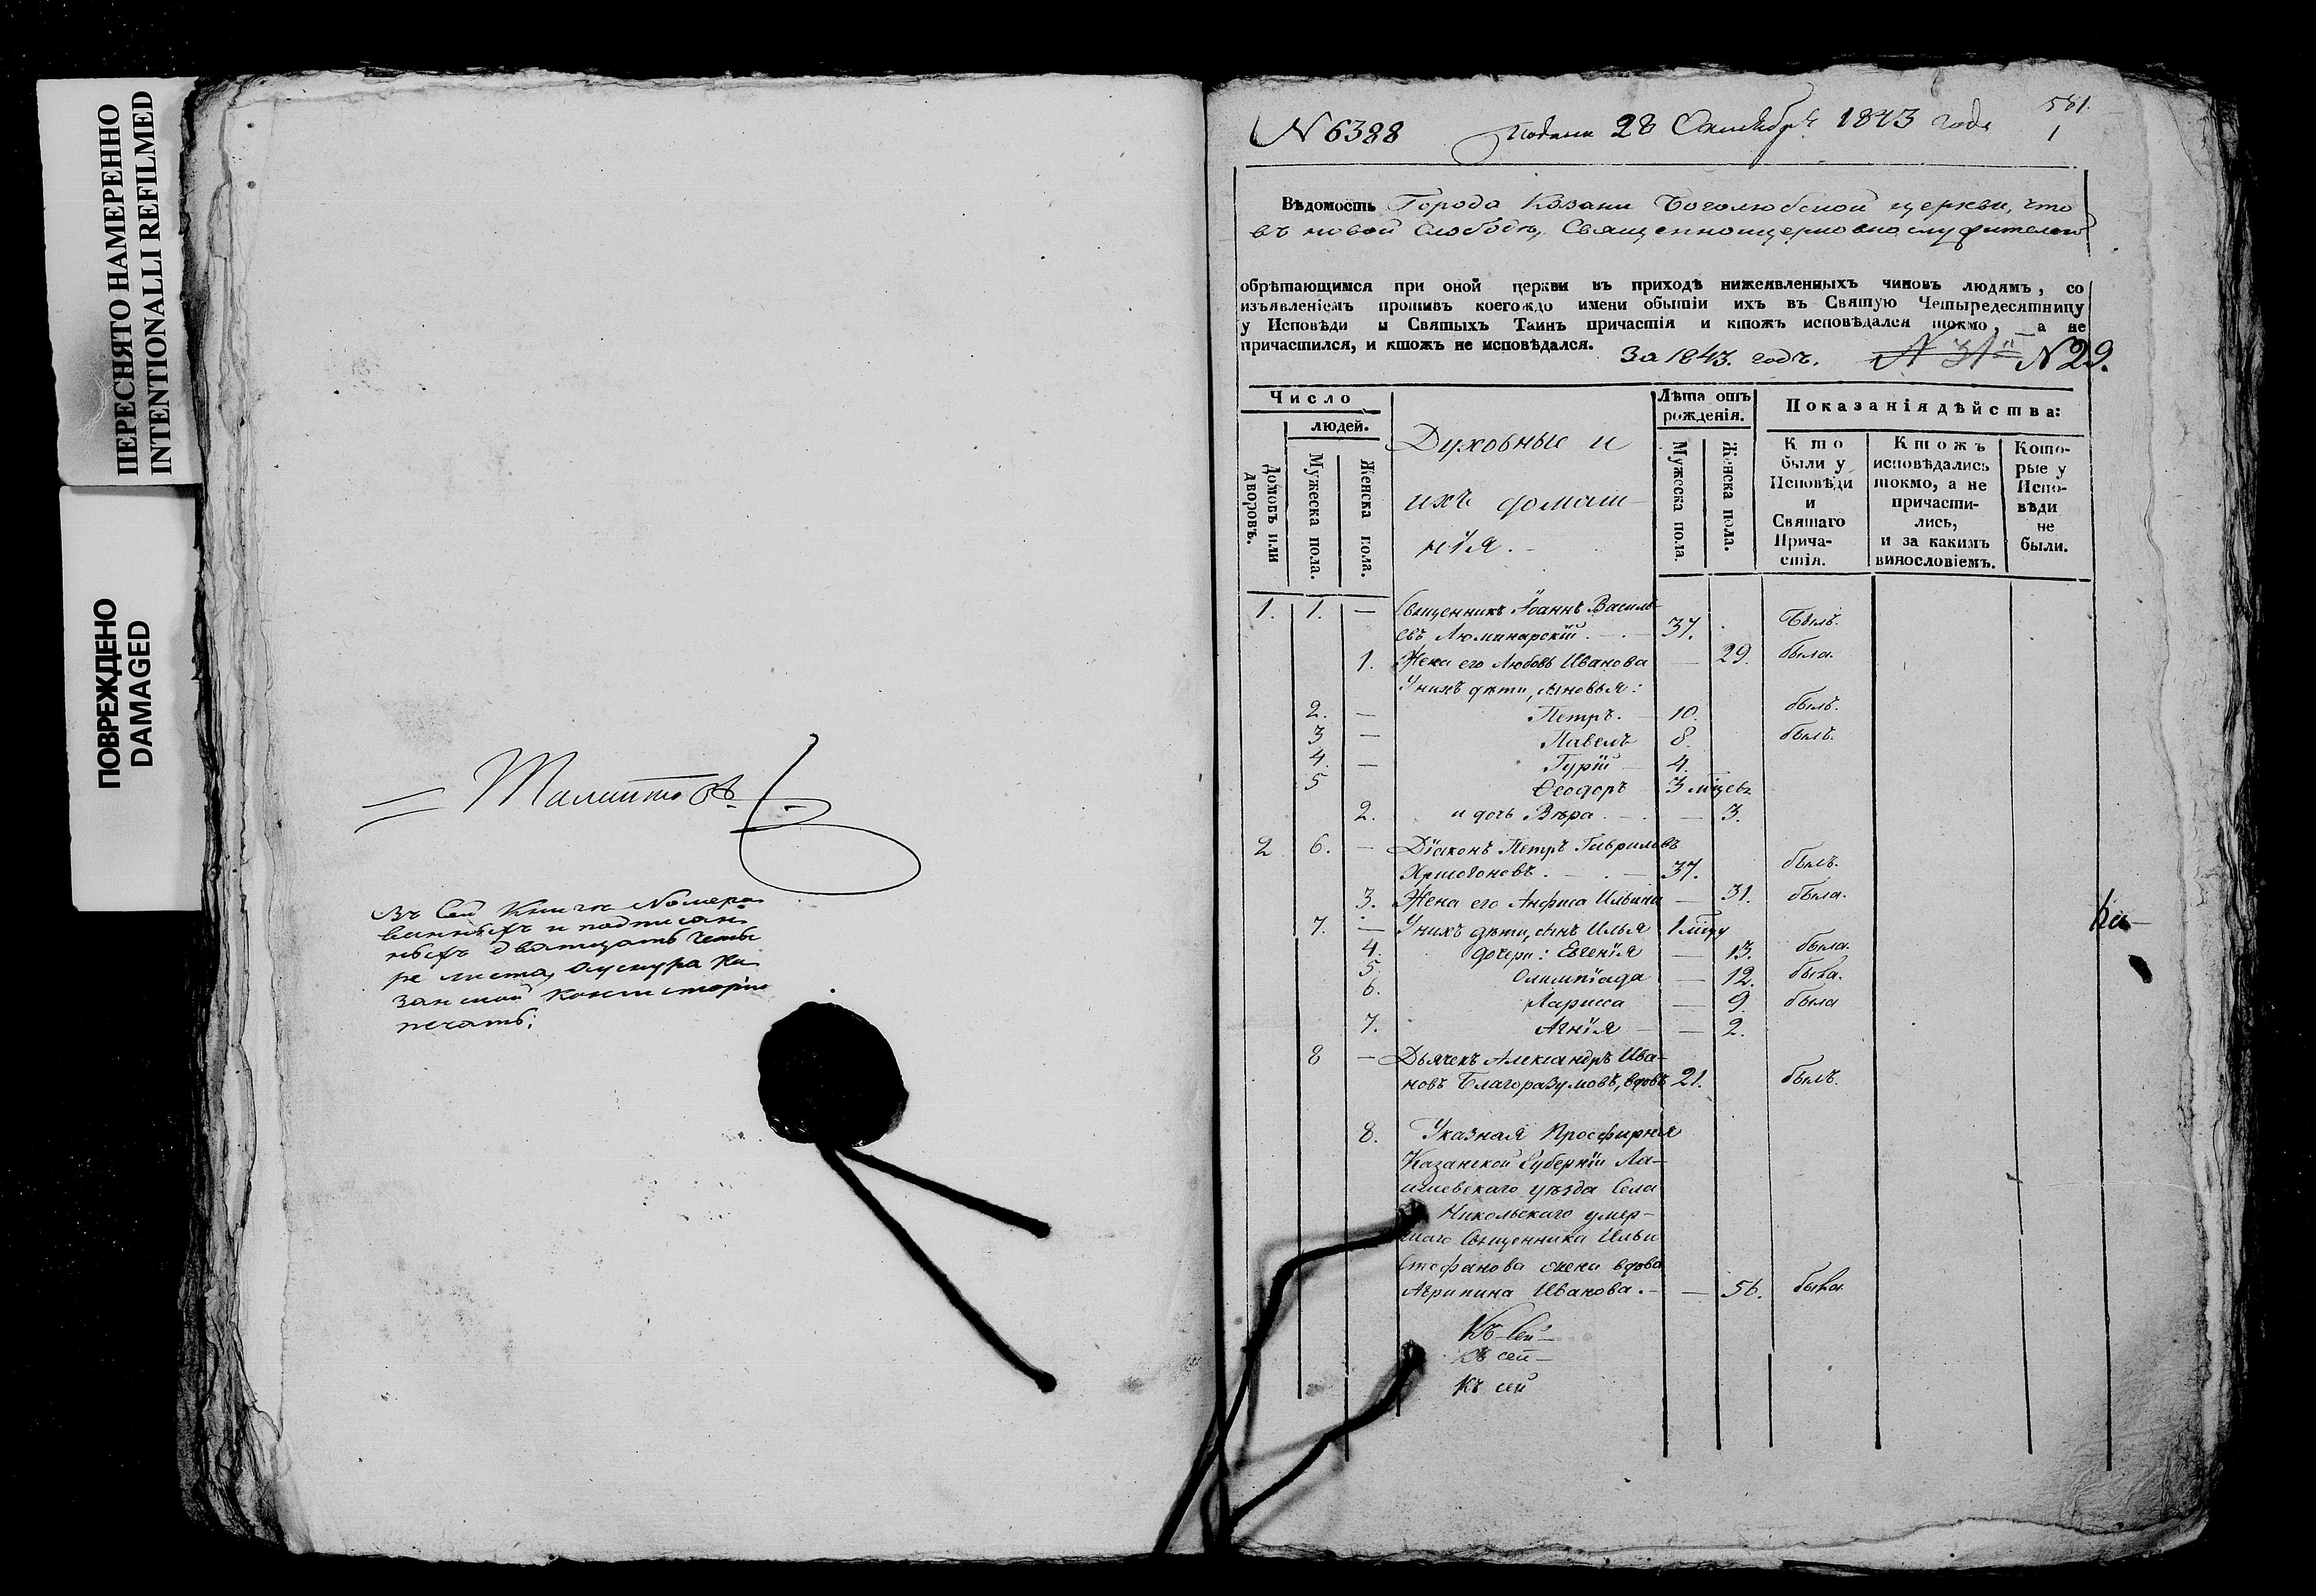 ПЕРЕСНЯТО НАМЕРЕННО
INTENTIONALLI REFILMED
ПОВРЕЖДЕНО
DAMAGED
Въ сей книгѣ номеро
ванныхъ и подписан
ныхъ двадцать четы
ре листа, а у шнура Ка
занской Консисторіи
печать.
N 6388 Подана 28 Октября 1843 года
581.
1
Вѣдомость Города Казани Боголюбской церкви, что
въ новой Слободѣ, Священноцерковнослужителей
обрѣтающимся при оной церкви въ приходѣ нижеявленныхъ чиновъ людямъ, со
изъявленіемъ противъ коегождо имени обытіи ихъ въ Святую Четыредесятницу
у Исповѣди и Святыхъ Таинъ причастія и ктожъ исповѣдался токмо, а не
причастился, и ктожъ не исповѣдался.
За 1843. годъ. N 31й N 29.
Число
людей.
Домовъ или дворовъ.
Мужеска пола.
Женска пола.
Духовные и
ихъ домаш-
нія.
Лѣта отъ
рожденія.
Мужеска пола.
Женска пола.
Показанія дѣйства:
Кто
были у
Исповѣди
и
Святаго
Прича-
стія.
Ктожъ
исповѣдались
токмо, а не
причасти-
лись,
и за какимъ
винословіемъ.
Кото-
рые у
Испо-
вѣди
не
были.
1. 1. — Священникъ Іоаннъ Василь-
евъ Люминарскій. 37. былъ.
1. Жена его Любовь Иванова — 29. была.
У нихъ дѣти, сыновья:
2. — Петръ. 10. былъ.
3 — Павелъ 8. былъ.
4. — Гурій 4.
5 Ѳеодоръ 3 мцевъ
2. и дочь Вѣра — 3.
2 6. — Діаконъ Петръ Гавриловъ
37. былъ.
3. Жена его Анфиса Ильина — 31. была.
7. — У нихъ дѣти, сынъ Илья 1 мцу
4. дочери: Евгенія — 13. была.
5. Олимпіада — 12. была.
6. Лариса — 9. была
7. Агнія — 2.
8 — Дьячекъ Александръ Ива-
новъ Благоразумовъ, вдовъ 21. былъ.
8. Указная Просфирня
Казанской Губерніи Ла-
ишевскаго уѣзда Села
Никольскаго умер-
шаго Священника Ильи
Стефанова жена вдова
Агрипина Иванова. — 56. была.
Къ сей
Къ сей
Къ сей
Ка-